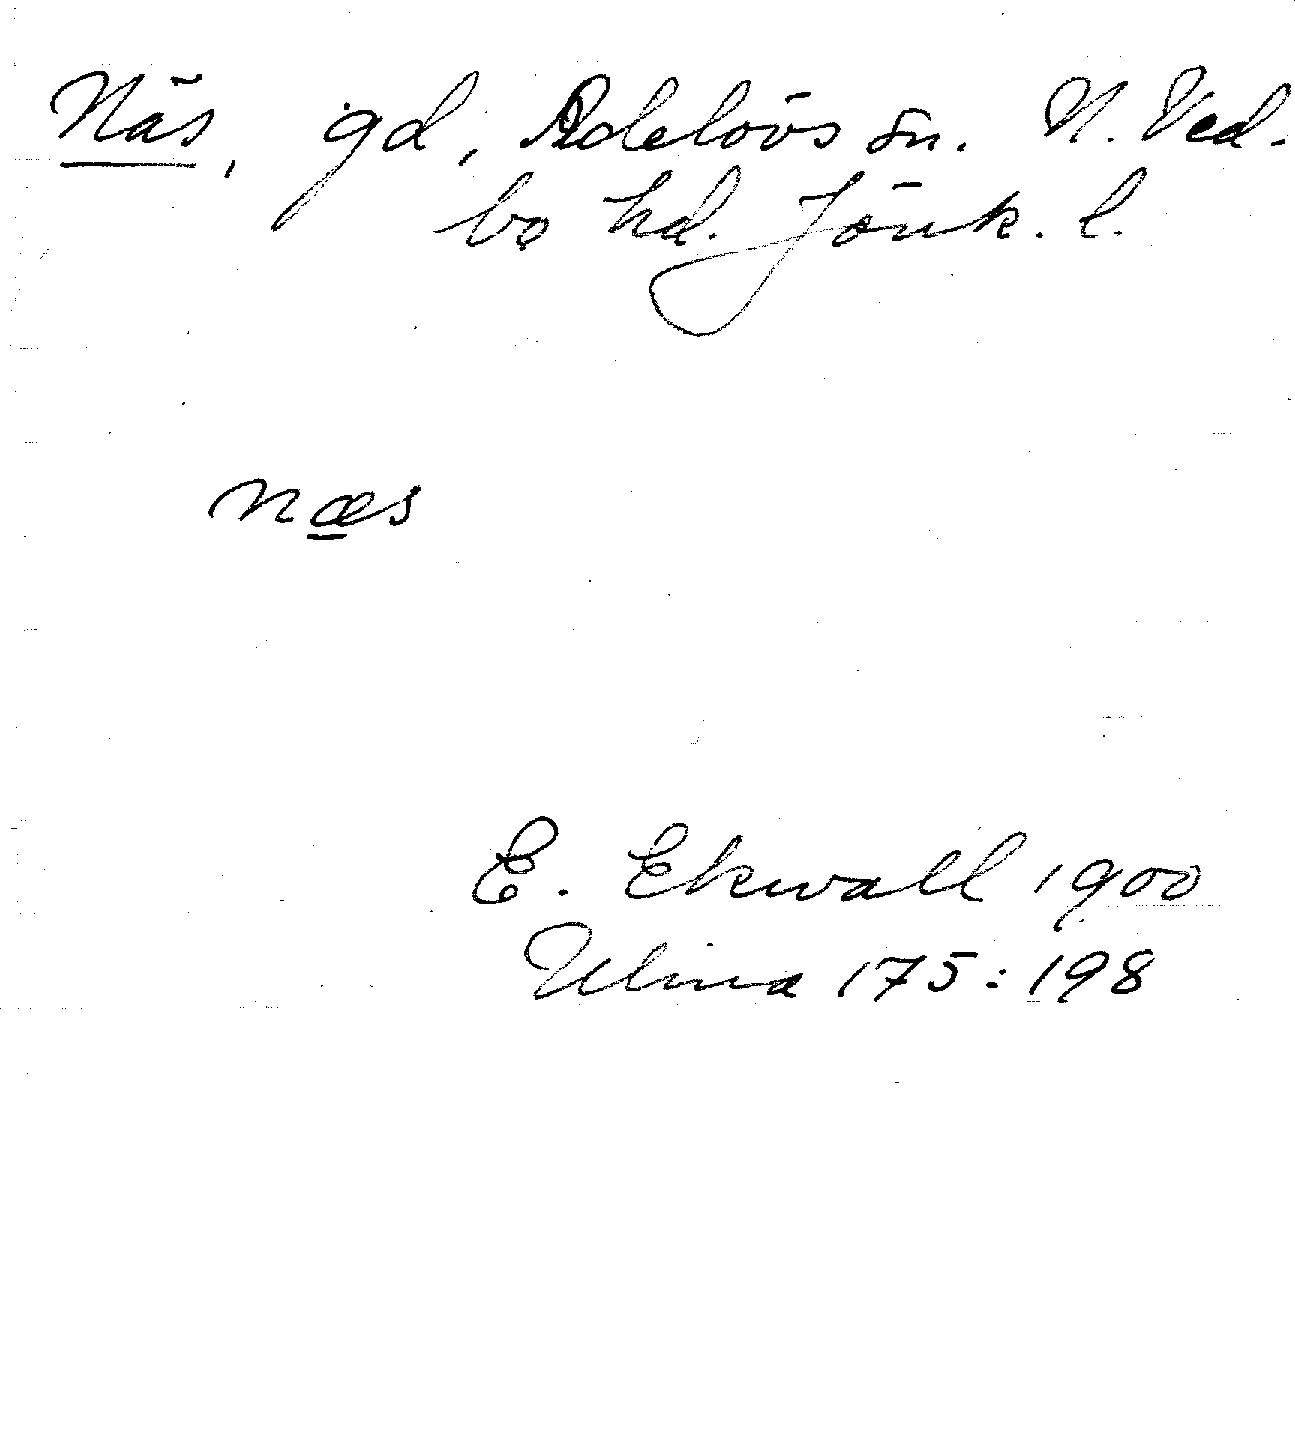 Näs, gd, Adelövs sn. N. Ved-
bo hd. Jönk. l.
næs
E. Ekwall 1900
Ulma 175:198